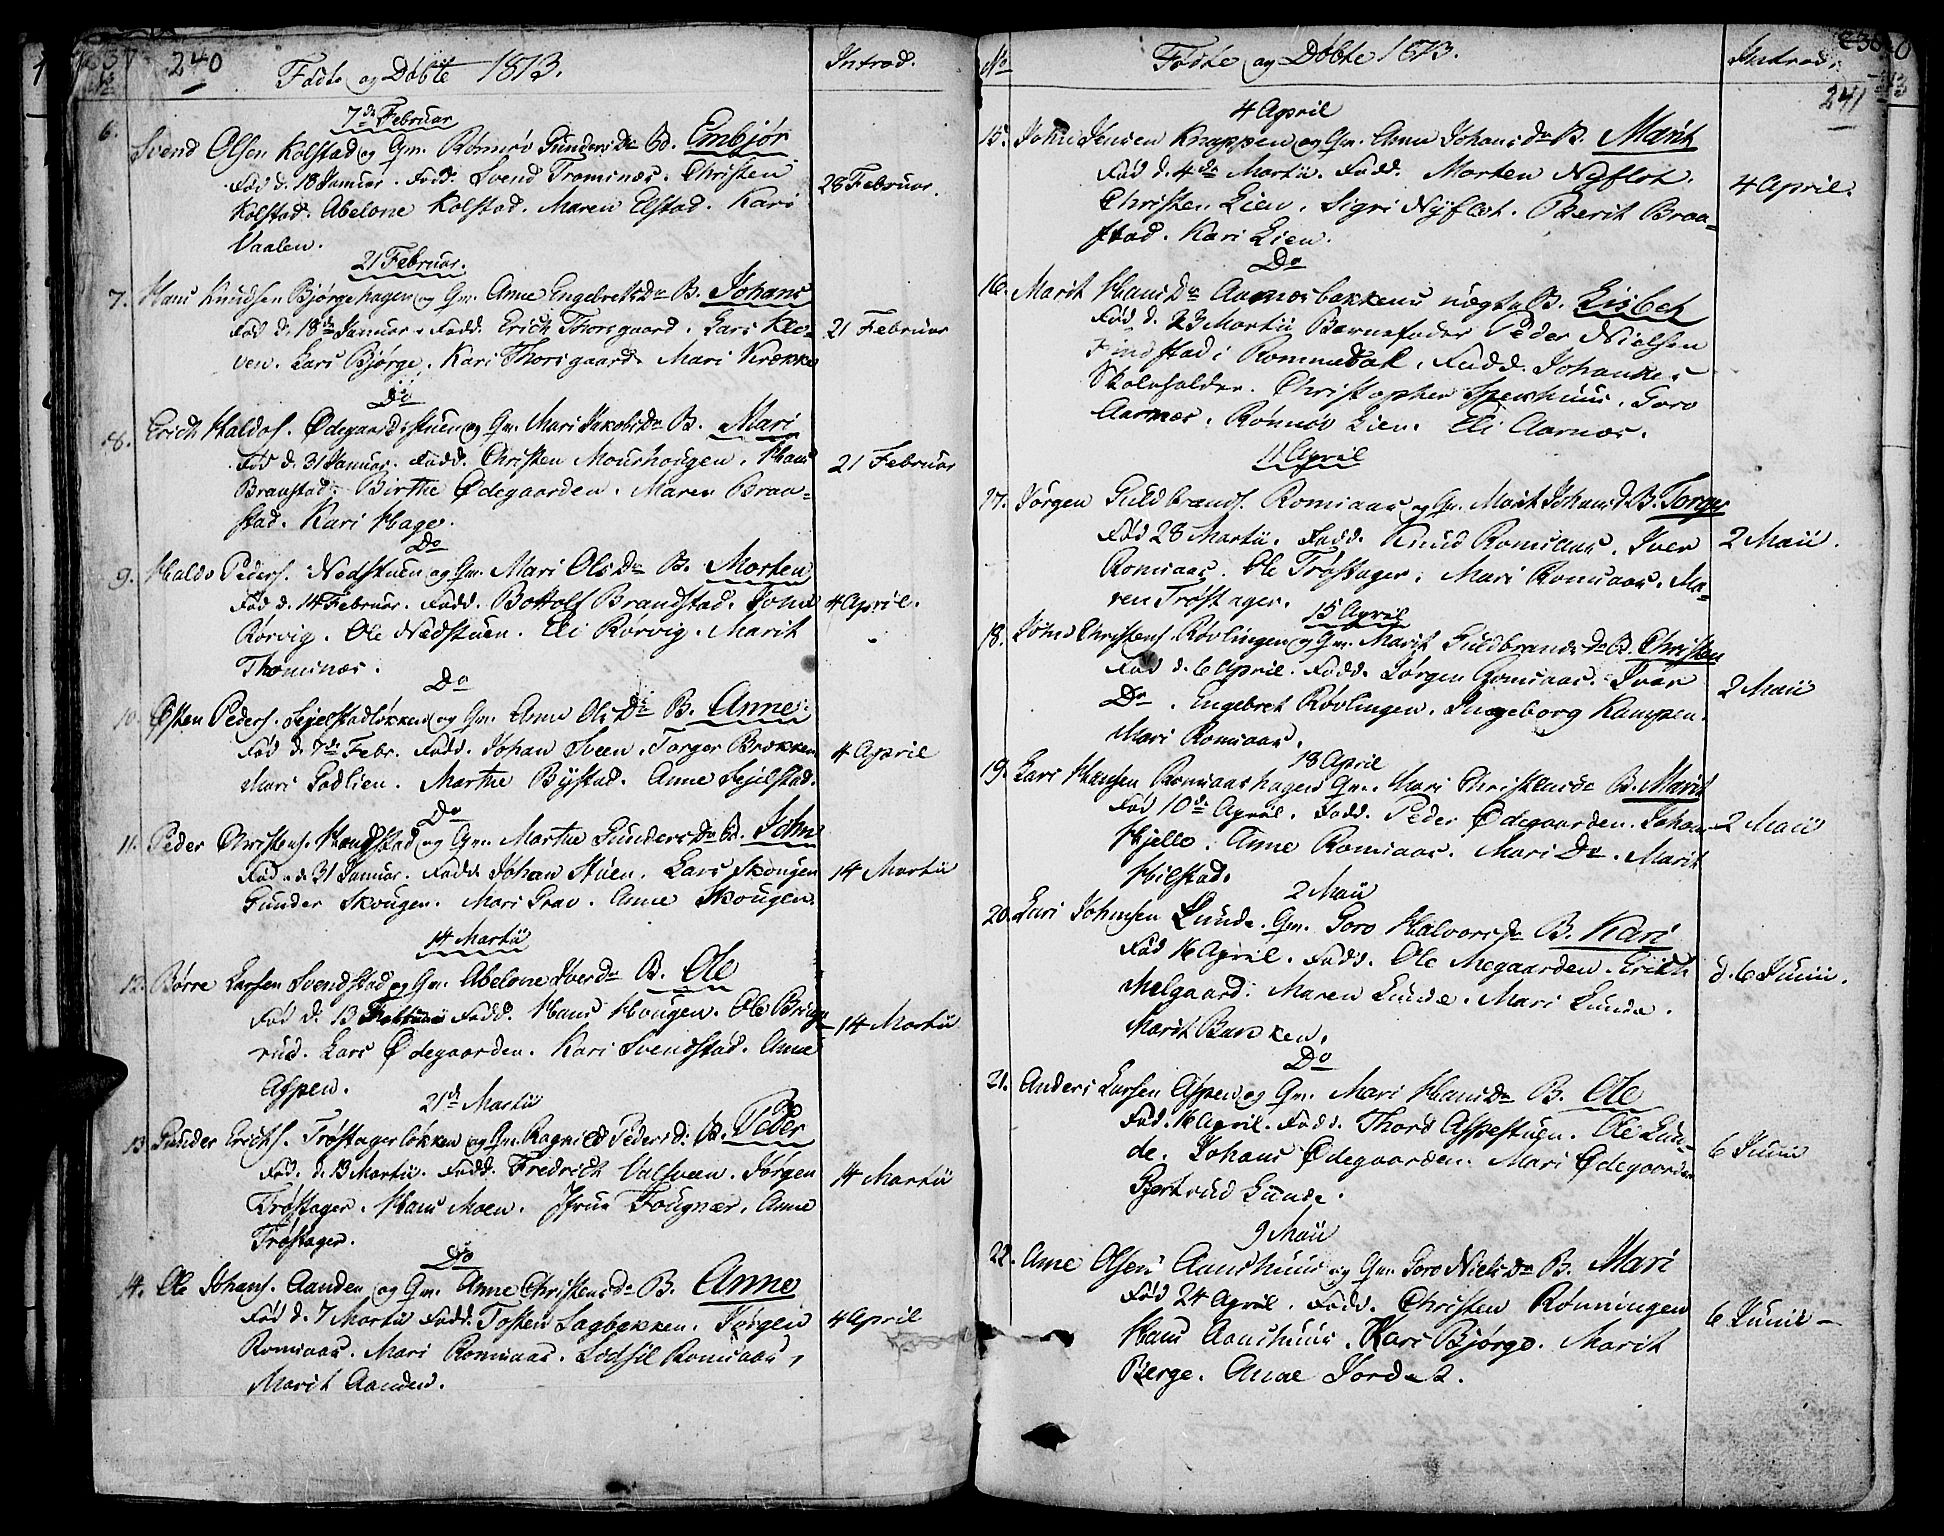 240
No
Fødte og Døbte 1813.
Introd.
7de Februar
6. Svend Olsen Kolstad og Qv. Rønnou Gunders Dr B. Embjør
Fød d. 18 Januar. Fadd. Svend Tromsnæs. Christen
Kolstad. Abelone Kolstad. Maren Elstad. Kari
Vaalen.
28 Februar.
21 Februar.
7. Hans Knudsen Bjørgehagen og Qv. Anne Engebrets Dr B. Johans
Fød d. 18de Januar. Fadd. Erich Thorsgaard. Lars Kle-
ven. Lars Bjørge. Kari Thorsgaard. Mari Krække
21 Februar
Do
8. Erich Haldos. Ødegaardsstuen og Qv. Mari Jakobs Dr B. Mari
Fød d. 31 Januar. Fadd. Christen Mourhougen. Hans
Braastad. Birthe Ødegaarden. Maren Braa-
stad. Kari Hage.
21 Februar
Do
9. Haldo Peders. Nedstuen og Qv. Mari Ols Dr B. Morten
Fød d. 14 Februar. Fadd. Bottolf Brandstad. John
Rørvig. Ole Nedstuen. Eli Rørvig. Marit
Thomsnæs.
4 April.
Do
10. Østen Peders. Sejelstadløkken og Qv. Anne Ols Dr B. Anne
Fød d. 7de Febr. Fadd. Johan Sveen. Torger Brækken
Mari Godlien. Marthe Bystad. Anne Sejelstad.
4 April
Do
11. Peder Christens. Handstad og Qv. Marthe Gunders Dr B. John
Fød d. 31 Januar. Fadd. Johan Stuen. Lars Skougen
Gunder Skougen. Mari Grav. Anne Skougen.
14 Martii
14 Martii
12. Børre Larsen Svendstad og Qv. Abelone Iver Dr B. Ole
Fød d. 13 Februar Fadd. Hans Hougen. Ole Brige-
rud. Lars Ødegaarden. Kari Svendstad. Anne
Aspen.
14 Martii
21de Martii
13. Gunder Erichs. Trøstagerløkken og Qv. Ragnild Peders d. B. Peder
Fød. d. 13 Martii. Fadd. Fredrich Valsveen. Jørgen
Trøstager. Hans Moen. Jfrue Fougnær. Anne
Trøstager.
14 Martii
Do
14. Ole Johans. Aanden og Qv. Anne Christens Dr B. Anne
Fød d. 7 Martii Fadd. Tosten Bagbekken. Jørgen
Romsaas. Mari Romsaas. Lodsil Romsaas,
Marit Aanden.
4 April
No
Fødte og Døbte 1813.
Introd.
241
4 April
15. John Jensen Knappen og Qv. Anne Johans Dr B. Marit
Fød d. 4de Martii. Fadd. Morten Nyfløt.
Christen Lien. Sigri Nyfløt. Berit Braa-
stad. Kari Lien.
4 April.
Do
16. Marit Hans Dr Aarnæsbakkens uægte B. Lisbet
Fød d. 23 Martii Barnefader Peder Nielsen
Findstad i Rommedal. Fadd. Johannes
Skoleholder. Christopher Stenhuus. Goro
Aarnæs. Rønnou Lien. Eli Aarnæs.
11 April
17. Jørgen Guldbrands. Romsaas og Qv. Marit Johans d B. Torger
Fød 28 Martii. Fadd. Knud Romsaas. Iver
Romsaas. Ole Trøstager. Mari Romsaas. Ma-
ren Trøstager.
2 Maii.
15 April
18. John Christens. Røvlingen og Qv. Marit Guldbrands Dr B. Christen
Fød d. 6 April. Fadd. Jørgen Romsaas. Iver
Do. Engebret Røvlingen. Ingeborg Kampen.
Mari Romsaas.
2 Maii
18 April
19. Lars Hansen Romsaashagen Qv. Mari Christens Dr B. Marit
Fød 10de April. Fadd. Peder Ødegaarden. Johan
Hjelle. Anne Romsaas. Mari Do. Marit
Hilstad.
2 Maii
2 Maii
20. Lars Johnsen Lunde. Qv. Goro Halvors Dr B. Kari
Fød 16 April. Fadd. Ole Megaarden. Erich
Melgaard. Maren Lunde. Mari Lunde.
Marit Bakken.
d. 6 Junii.
Do
21. Anders Larsen Aspen og Qv. Mari Hans Dr B. Ole
Fød. 16 April. Fadd. Thord Aspestuen. Ole Lun-
de. Johans Ødegaarden. Mari Ødegaarden
Gjertrud Lunde.
6 Junii
9 Maii
22. Arne Olsen Aanshuus og Qv. Goro Niels Dr B. Mari
Fød 24 April. Fadd. Christen Rønningen
Hans Aanshuus. Kari Bjørge. Marit
Berge. Anne Jordet.
6 Junii -